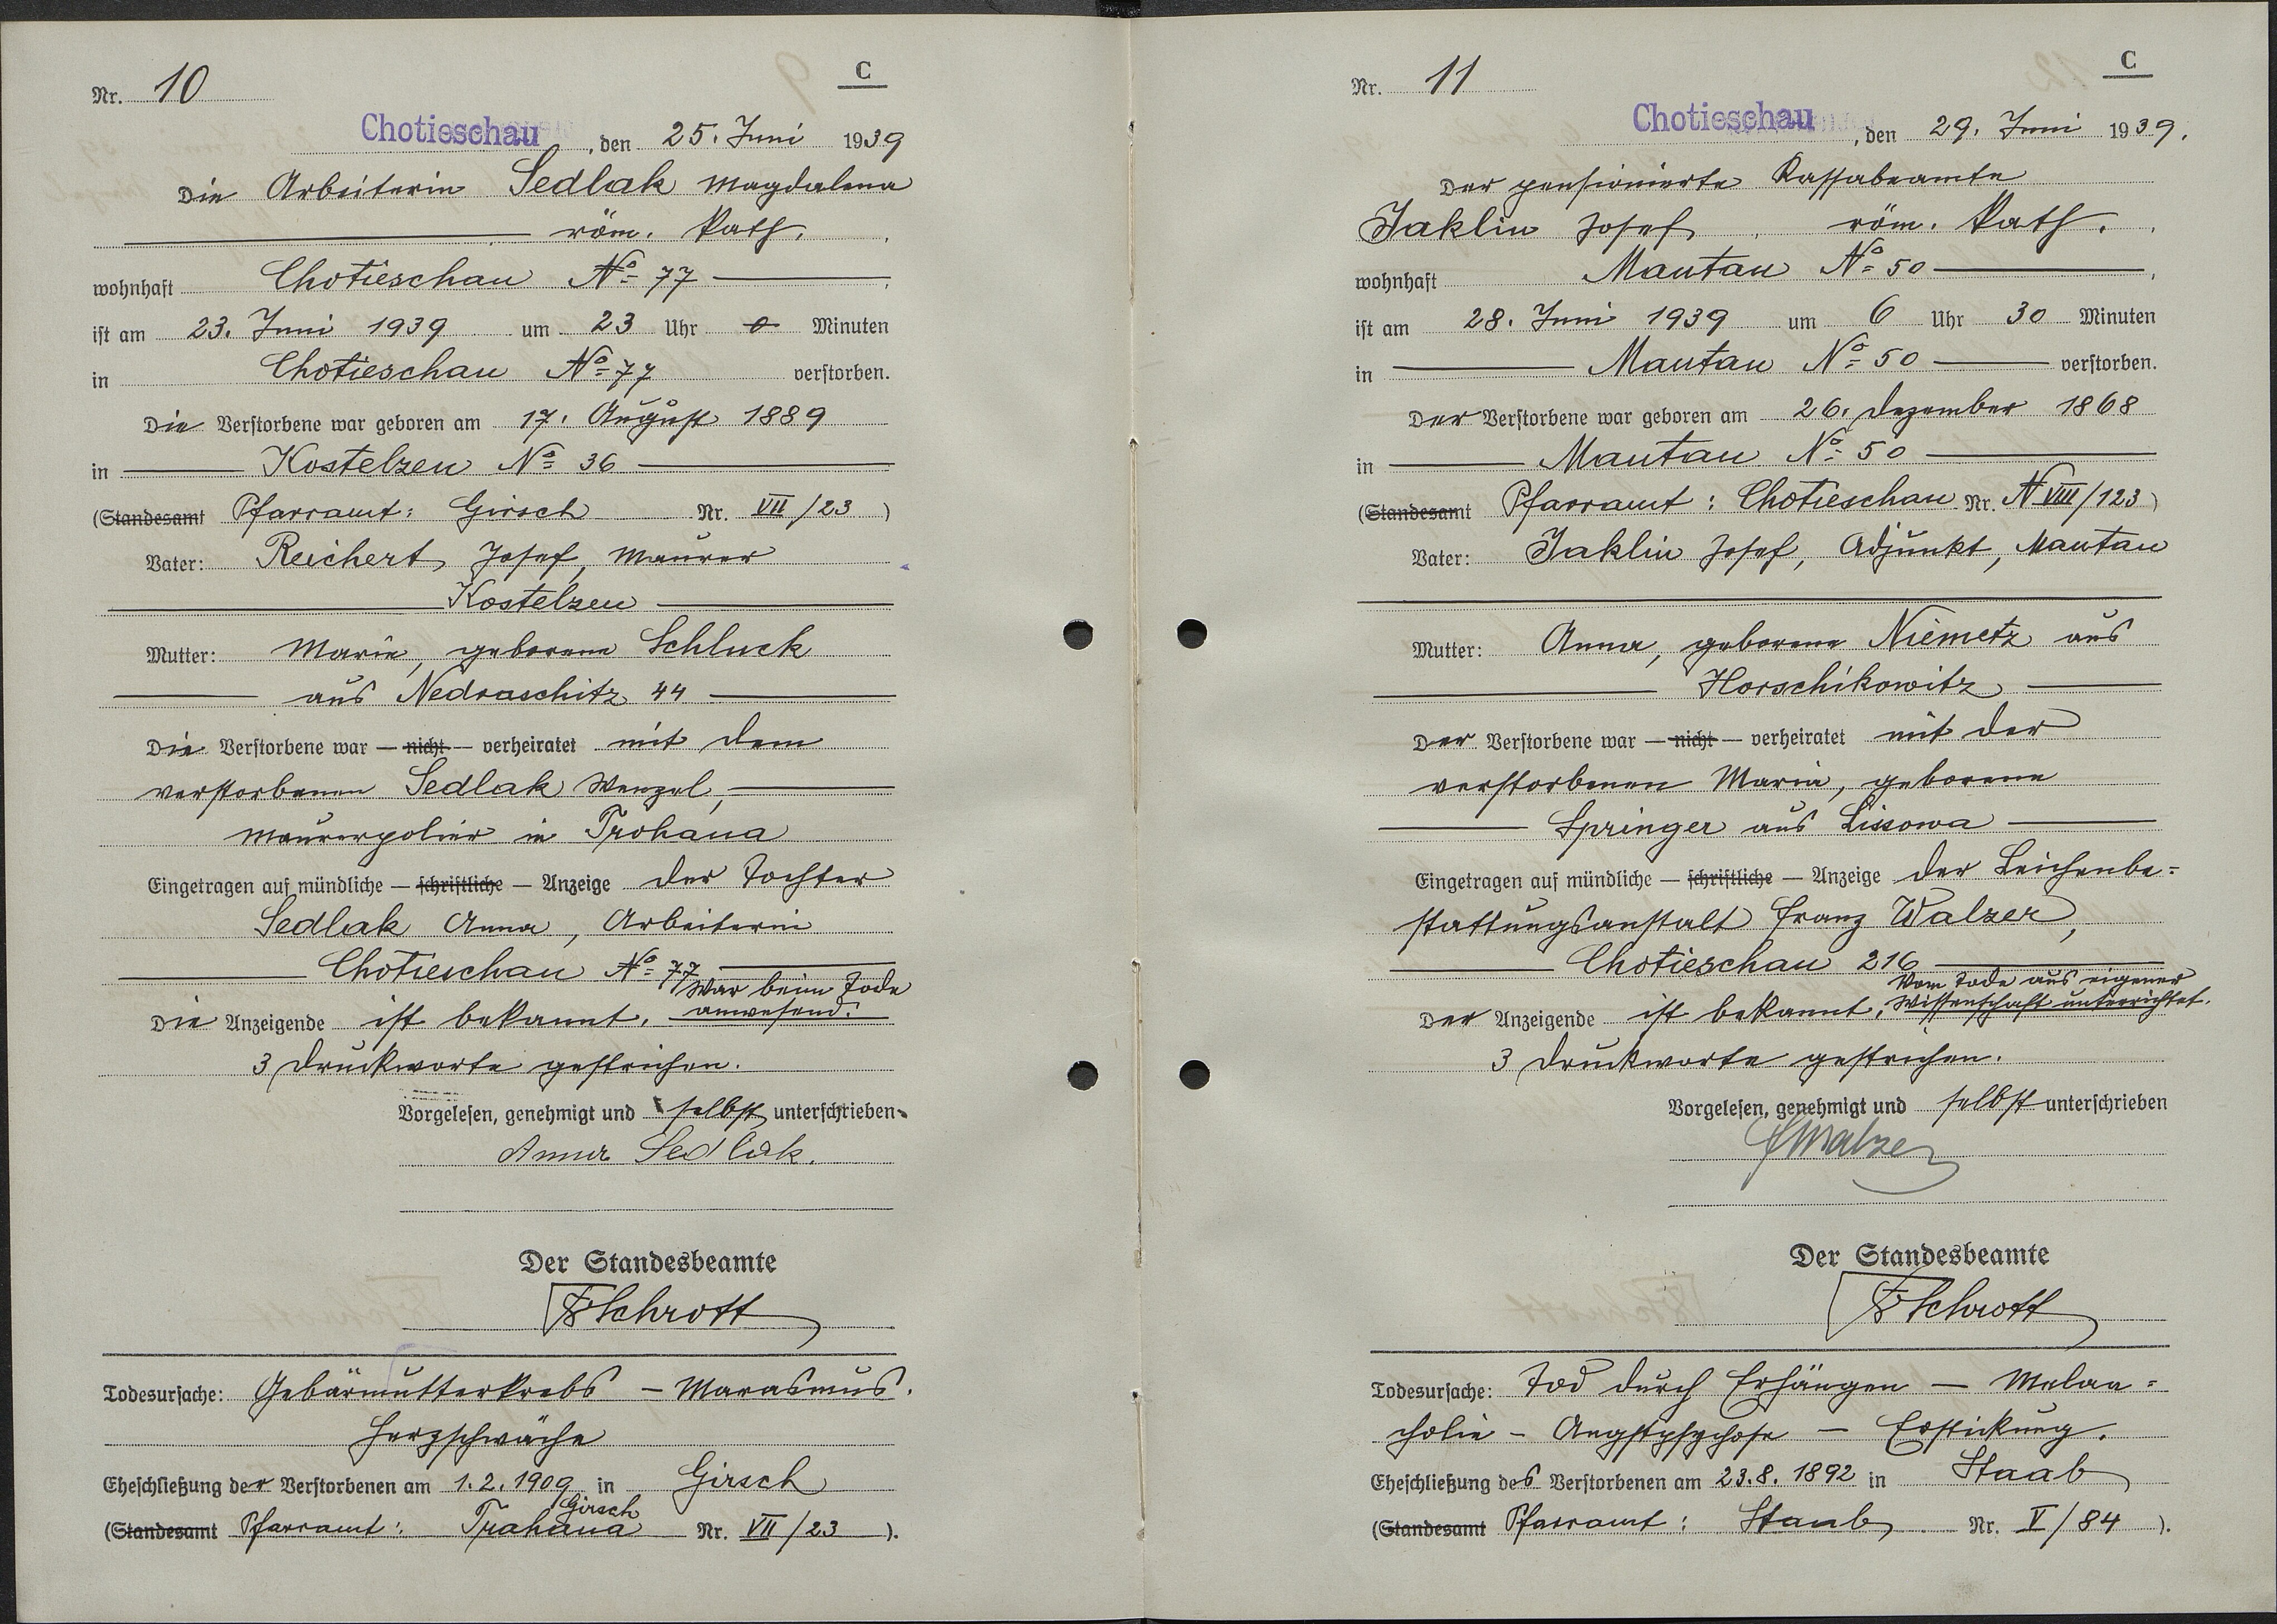 Nr. 10
C
Chotieschau, den 25. Juni 1939
Die Arbeiterin Sedlak Magdalena
röm. kath.
wohnhaft Chotieschau No 77
ist am 23. Juni 1939 um 23 Uhr 0 Minuten
in Chotieschau No 77 verstorben.
Die Verstorbene war geboren am 17. August 1889
in Kostelzen No 36
(Standesamt Pfarramt: Girsch Nr. VII/23)
Vater: Reichert Josef, Maurer
Kostelzen
Mutter: Marie, geborene Schluck
aus Nedraschitz 44
Die Verstorbene war — nicht — verheiratet mit dem
verstorbenen Sedlak Wenzel,
Maurerpolier in Trohana
Eingetragen auf mündliche — schriftliche — Anzeige der Tochter
Sedlak Anna, Arbeiterin
Chotieschau No 77
War beim Tode
Die Anzeigende ist bekannt. anwesend.
3 Druckworte gestrichen.
Vorgelesen, genehmigt und selbst unterschrieben
Anna Sedlak.
Der Standesbeamte
Schrott
Todesursache: Gebärmutterkrebs – Marasmus.
Herzschwäche
Eheschließung der Verstorbenen am 1.2.1909 in Girsch
Girsch
(Standesamt Pfarramt: Trahana Nr. VII/23).
Nr. 11
C
Chotieschau, den 29. Juni 1939.
Der pensionierte Kassabeamte
Jaklin Josef röm. kath.
wohnhaft Mantau No 50
ist am 28. Juni 1939 um 6 Uhr 30 Minuten
in Mantau No 50 verstorben.
Der Verstorbene war geboren am 26. Dezember 1868
in Mantau No 50
(Standesamt Pfarramt: Chotieschau Nr. N VIII/123)
Vater: Jaklin Josef, Adjunkt, Mantau
Mutter: Anna, geborene Niemetz aus
Horschikowitz
Der Verstorbene war — nicht — verheiratet mit der
verstorbenen Maria, geborene
Springer aus Lissowa
Eingetragen auf mündliche — schriftliche — Anzeige der Leichenbe=
stattungsanstalt Franz Walzer,
Chotieschau 216
Vom Tode aus eigener
Der Anzeigende ist bekannt, Wissenschaft unterrichtet.
3 Druckworte gestrichen.
Vorgelesen, genehmigt und selbst unterschrieben
F Walzer
Der Standesbeamte
Schrott
Todesursache: Tod durch Erhängen – Melan=
cholie – Angstpsychose – Erstickung.
Eheschließung des Verstorbenen am 23.8.1892 in Staab
(Standesamt Pfarramt: Staab Nr. V/84).